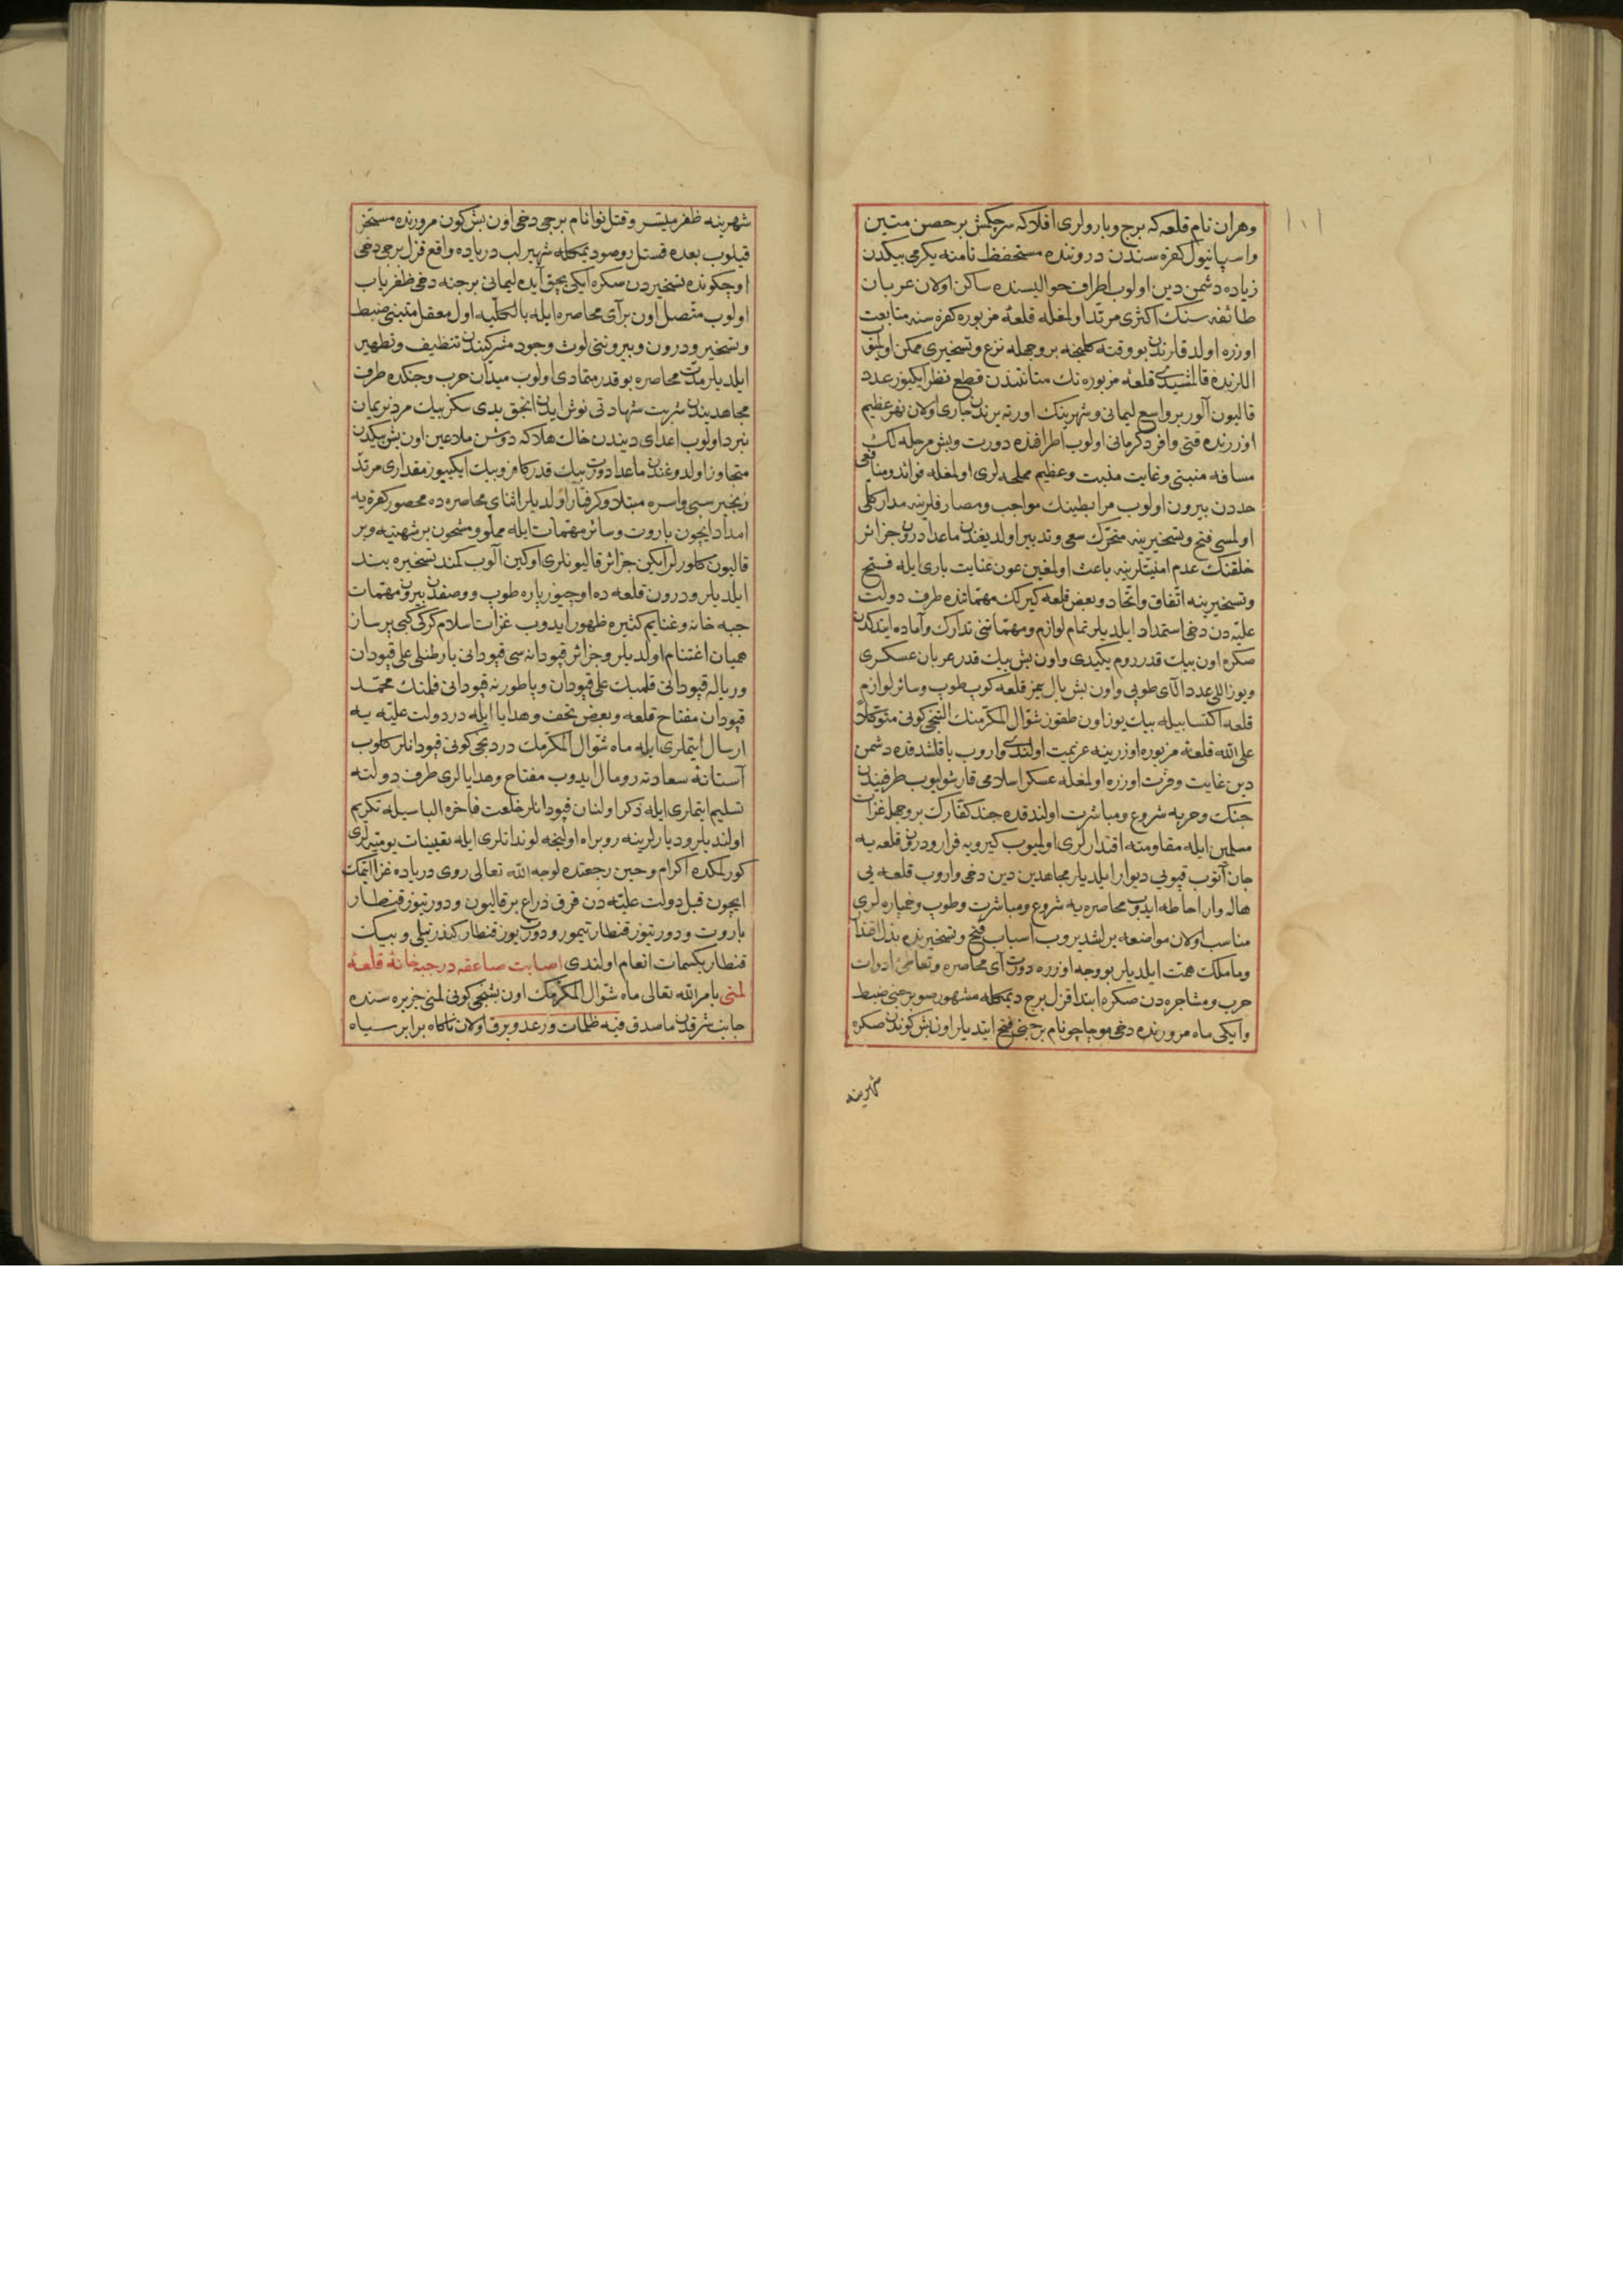 ١٠١
وهران نام قلعه كه برج وبارولری افلاكه سرچكمش بر حصن متین
واسپانیول كفره سندن دروننده مستحفظ نامنه یكرمی بیكدن
زیاده دشمن دین اولوب اطراف حوالیسنده ساكن اولان عربان
طائفه سنك اكثری مرتد اولمغله قلعهٔ مزبوره كفره سنه متابعت
اوزره اولدقلرندن بو وقته كلنجه بر وجهله نزع وتسخیری ممكن اولمیوب
اللرنده قالمشیدی قلعهٔ مزبوره نك متانتندن قطع نظر ایكیوز عدد
قالیون آلور بر واسع لیمانی وشهرینك اورته یرندن جاری اولان نهر عظیم
اوزرنده قتی وافر دكرمانی اولوب اطرافنده دورت وبش مرحلەلك
مسافه منبتی وغایت مذبت وعظیم مملحه لری اولمغله فوائد ومنافعی
حددن بیرون اولوب مرابطینك مواجب ومصارفلرینه مدار كلی
اولمسی فتح وتسخیرینه متحرك سعی وتدبیر اولدیغندن ماعدا درون جزائر
خلقنك عدم امنیتلرینه باعث اولمغین عون عنایت باری ایله فتح
وتسخیرینه اتفاق واتحاد وبعض قلعه كیرلك مهماتنده طرف دولت
علیه دن دخی استمداد ایلدیلر تمام لوازم ومهماتنی تدارك وآماده ایتدكدن
صكره اون بیك قدر روم یكیدی واون بش بیك قدر عربان عسكری
ویوز اللی عدد آلای طوپی واون بش بال یمز قلعه كوب طوپ وسائر لوازم
قلعه اكتسابیله بیك یوز اون طقوز شوال المكرمنك النجی كونی متوكلاً
علی الله قلعهٔ مزبوره اوزرینه عزیمت اولندی واروب یاقلشدقده دشمن
دین غایت وفرت اوزره اولمغله عسكر اسلامی قارشولیوب طرفیندن
جنك وحربه شروع ومباشرت اولندقده جند كفارك بر وجهله غزات
مسلمین ایله مقاومته اقتدارلری اولمیوب كیرویه فرار ودرون قلعه یه
جان آتوب قپویی دیوار ایلدیلر مجاهدین دین دخی واروب قلعه یی
هاله وار احاطه ایدوب محاصره یه شروع ومباشرت وطوپ وخمپاره لری
مناسب اولان مواضعه یرلشدیروب اسباب فتح وتسخیرنده بذل اقتدار
وماملك همت ایلدیلر بو وجه اوزره دورت آی محاصره وتعاطئ ادوات
حرب ومشاجره دن صكره ابتدا قزل برج دیمكله مشهور صو برجنی ضبط
وایكی ماه مرورنده دخی موجاجو نام برجی فتح ایتدیلر اون بش كوندن صكره
شهرینه
شهرینه ظفر میسر وقتانوا نام برجی دخی اون بش كون مرورنده مسخر
قیلوب بعده قستل روصو دیمكله شهیر لب دریاده واقع قزل برجی دخی
اوچ كونده تسخیردن صكره ایكی بچق آیده لیمانی برجنه دخی ظفریاب
اولوب متصل اون بر آی محاصره ایله بالكلیه اول معقل متینی ضبط
وتسخیر ودرون وبیروننی لوث وجود مشركیندن تنظیف وتطهیر
ایلدیلر مدت محاصره بو قدر متمادی اولوب میدان حرب وجنكده طرف
مجاهدیندن شربت شهادتی نوش ایدن انجق یدی سكز بیك مرد نریمان
نبرد اولوب اعدای دیندن خاك هلاكه دوشن ملاعین اون بش بیكدن
متجاوز اولدوغندن ماعدا دورت بیك قدر كافر وبیك ایكییوز مقداری مرتد
زنجیر سبی واسره مبتلا وكرفتار اولدیلر اثنای محاصره ده محصور كفره یه
امداد ایچون باروت وسائر مهمات ایله مملو ومشحون بر شهتیه وبر
قالیون كلورلر ایكن جزائر قالیونلری اوكین آلوب كمند تسخیره بند
ایلدیلر ودرون قلعه ده اوچیوز پاره طوپ ووصفدن بیرون مهمات
جبه خانه وغنایم كثیره ظهور ایدوب غزات اسلام كركی كبی پرساز
همیان اغتنام اولدیلر وجزائر قپودانه سی قپودانی بارطنلی علی قپودان
وریاله قپودانی قلمبك علی قپودان وپاطورنه قپودانی فلمنك محمد
قپودان مفتاح قلعه وبعض تحف وهدایا ایله در دولت علیه یه
ارسال ایتملری ایله ماه شوال المكرمك دردنجی كونی قپودانلر كلوب
آستانهٔ سعادته رومال ایدوب مفتاح وهدایالری طرف دولته
تسلیم ایتملری ایله ذكر اولنان قپودانلر خلعت فاخره الباسیله تكریم
اولندیلر ودیارلرینه روبراه اولنجه لوندانلری ایله تعیینات یومیه لری
كورلمكده اكرام وحین رجعتده لوجه الله تعالی روی دریاده غزا ایتمك
ایچون قبل دولت علیه دن قرق ذراع بر قالیون ودورتیوز قنطار
باروت ودورتیوز قنطار تیمور ودورت یوز قنطار كندر تیلی وبیك
قنطار بكسمات انعام اولندی اصابت صاعقه در جبه خانهٔ قلعهٔ
لمنی بامر الله تعالی ماه شوال المكرمك اون بشنجی كونی لمنی جزیره سنده
جانب شرقدن ماصدق فیه ظلمات ورعد وبرق اولان ناكاه بر ابر سیاه